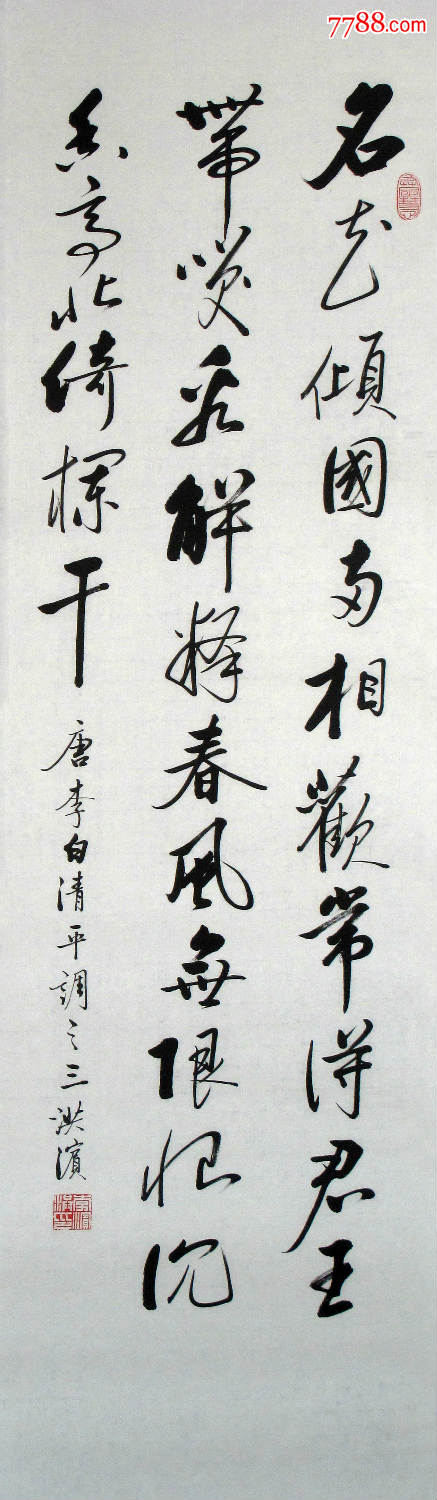 7788.com
名花傾國両相歡常得君王
帶笑看解釋春風無限恨沉
香亭北倚欄干
唐李白清平調之三洪濱